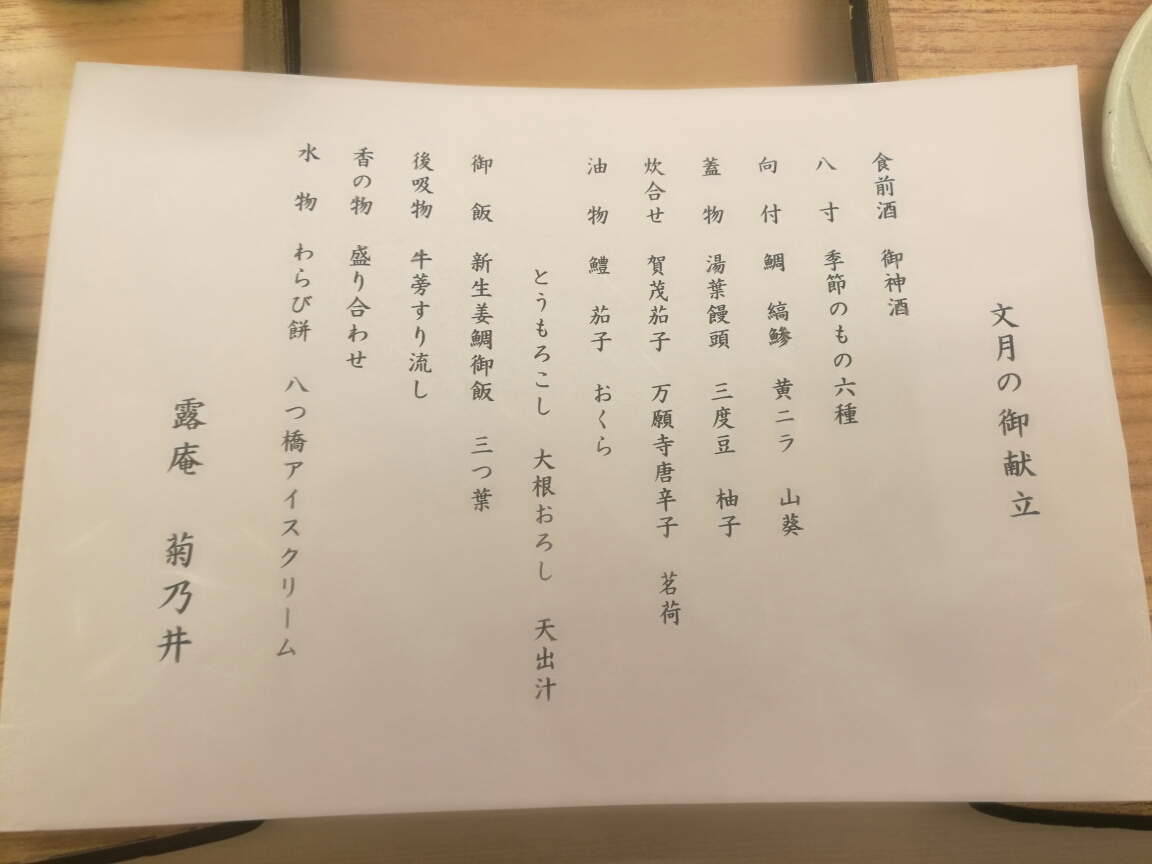 文月の御献立
食前酒 御神酒
八寸 季節のもの六種
向付 鯛 縞鯵 黄ニラ 山葵
蓋物 湯葉饅頭 三度豆 柚子
炊合せ 賀茂茄子 万願寺唐辛子 茗荷
油物 鱧 茄子 おくら
とうもろこし 大根おろし 天出汁
御飯 新生姜鯛御飯 三つ葉
後吸物 牛蒡すり流し
香の物 盛り合わせ
水物 わらび餅 八つ橋アイスクリーム
露庵 菊乃井